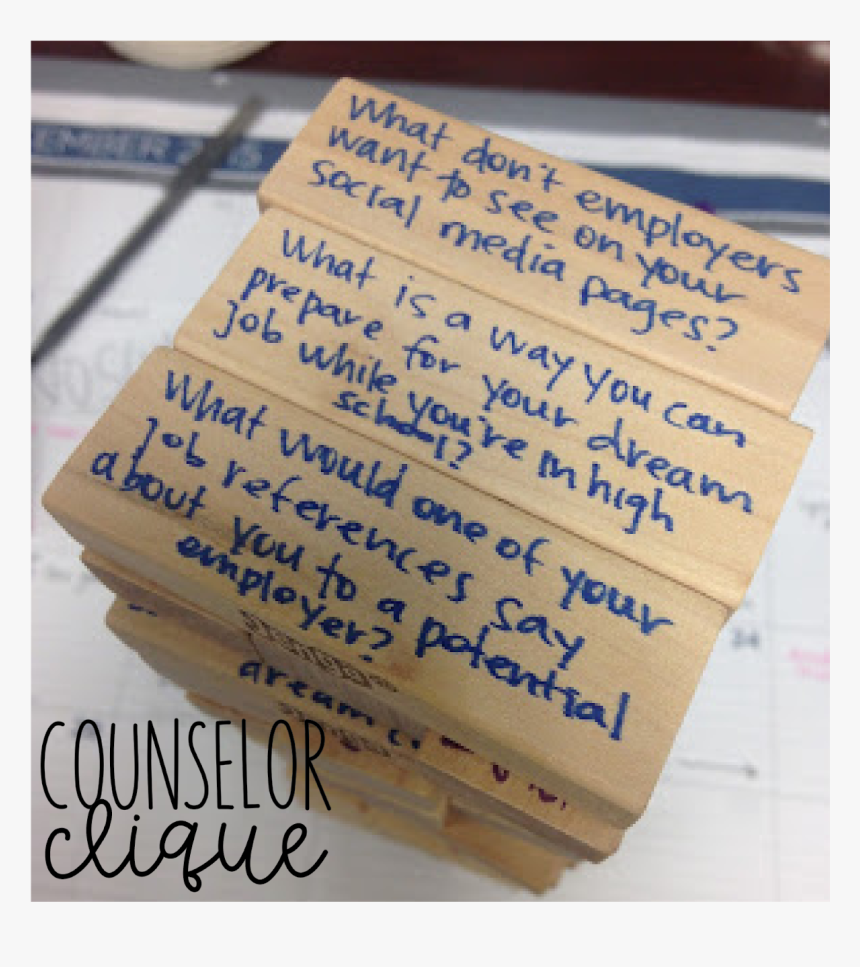 EMBER 2015
What don't employers
want to see on your
social media pages?
What is a way you can
prepare for your dream
job while you're in high
school?
What would one of your
job references say
about you to a potential
employer?
dream
24
COUNSELOR
clique